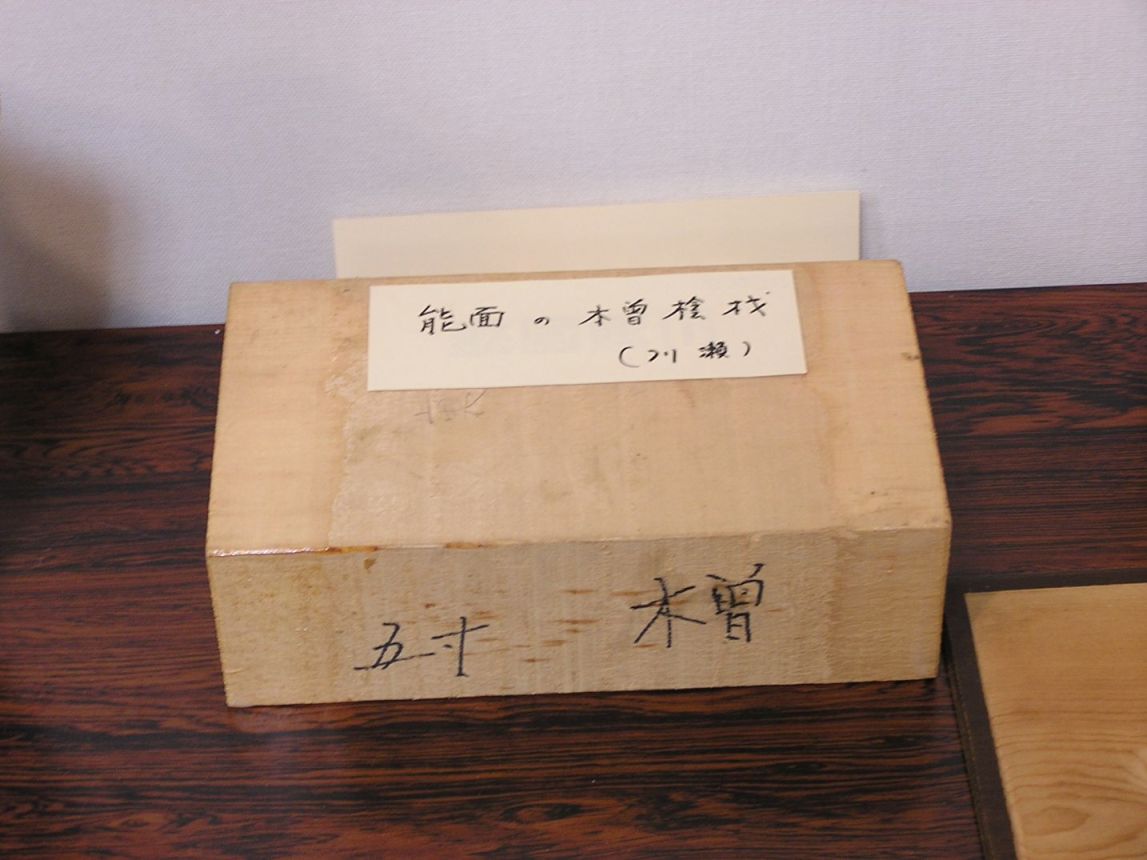 能面の木曽桧材
(川瀬)
五寸 木曽